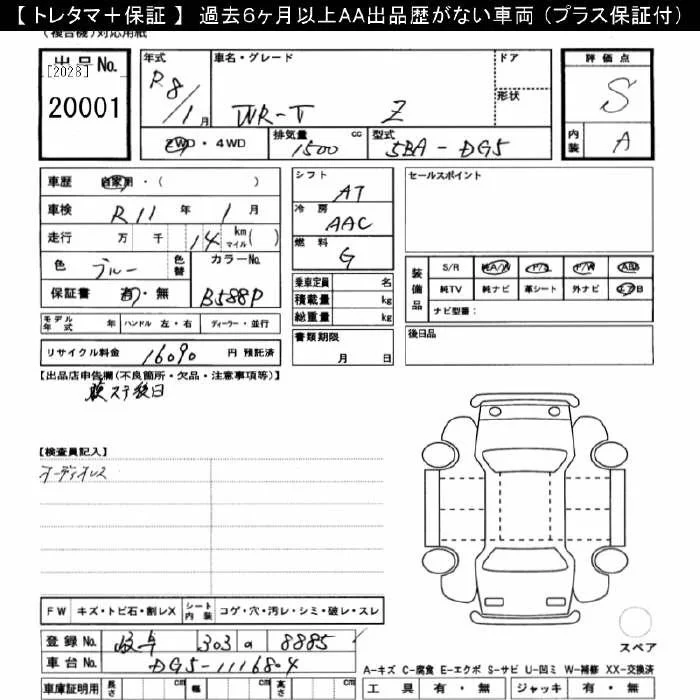 【 トレタマ＋保証 】 過去6ヶ月以上AA出品歴がない車両 (プラス保証付)
(複合機)対応用紙
出品No.
[2028]
20001
年式
R8/1月
車名・グレード
WR-V Z
ドア
形状
評価点
S
内装 A
2WD・4WD
排気量 1500 cc
型式 5BA-DG5
車歴 自家用・( )
車検 R11年 1月
走行 万 千 14 km マイル( )
色 ブルー 色替 カラーNo.
保証書 有・無 B588P
モデル年式 年 ハンドル 左・右 ディーラー・並行
リサイクル料金 16090 円 預託済
シフト AT
冷房 AAC
燃料 G
乗車定員 名
積載量 kg
総重量 kg
書類期限
月 日
セールスポイント
装備品
S/R 純A/W P/S P/W ABS
純TV 純ナビ 革シート 外ナビ エアB
ナビ型番:
後日品
【出品店申告欄(不良箇所・欠品・注意事項等)】
取ステ後日
【検査員記入】
オーディオレス
FW キズ・トビ石・割レX シート内装 コゲ・穴・汚レ・シミ・破レ・スレ
登録No. 岐阜 303 a 8885
車台No. DG5-1116804
車庫証明用 長さ cm 幅 cm 高さ cm
スペア
A-キズ C-腐食 E-エクボ S-サビ U-凹ミ W-補修 XX-交換済
工具 有・無 ジャッキ 有・無